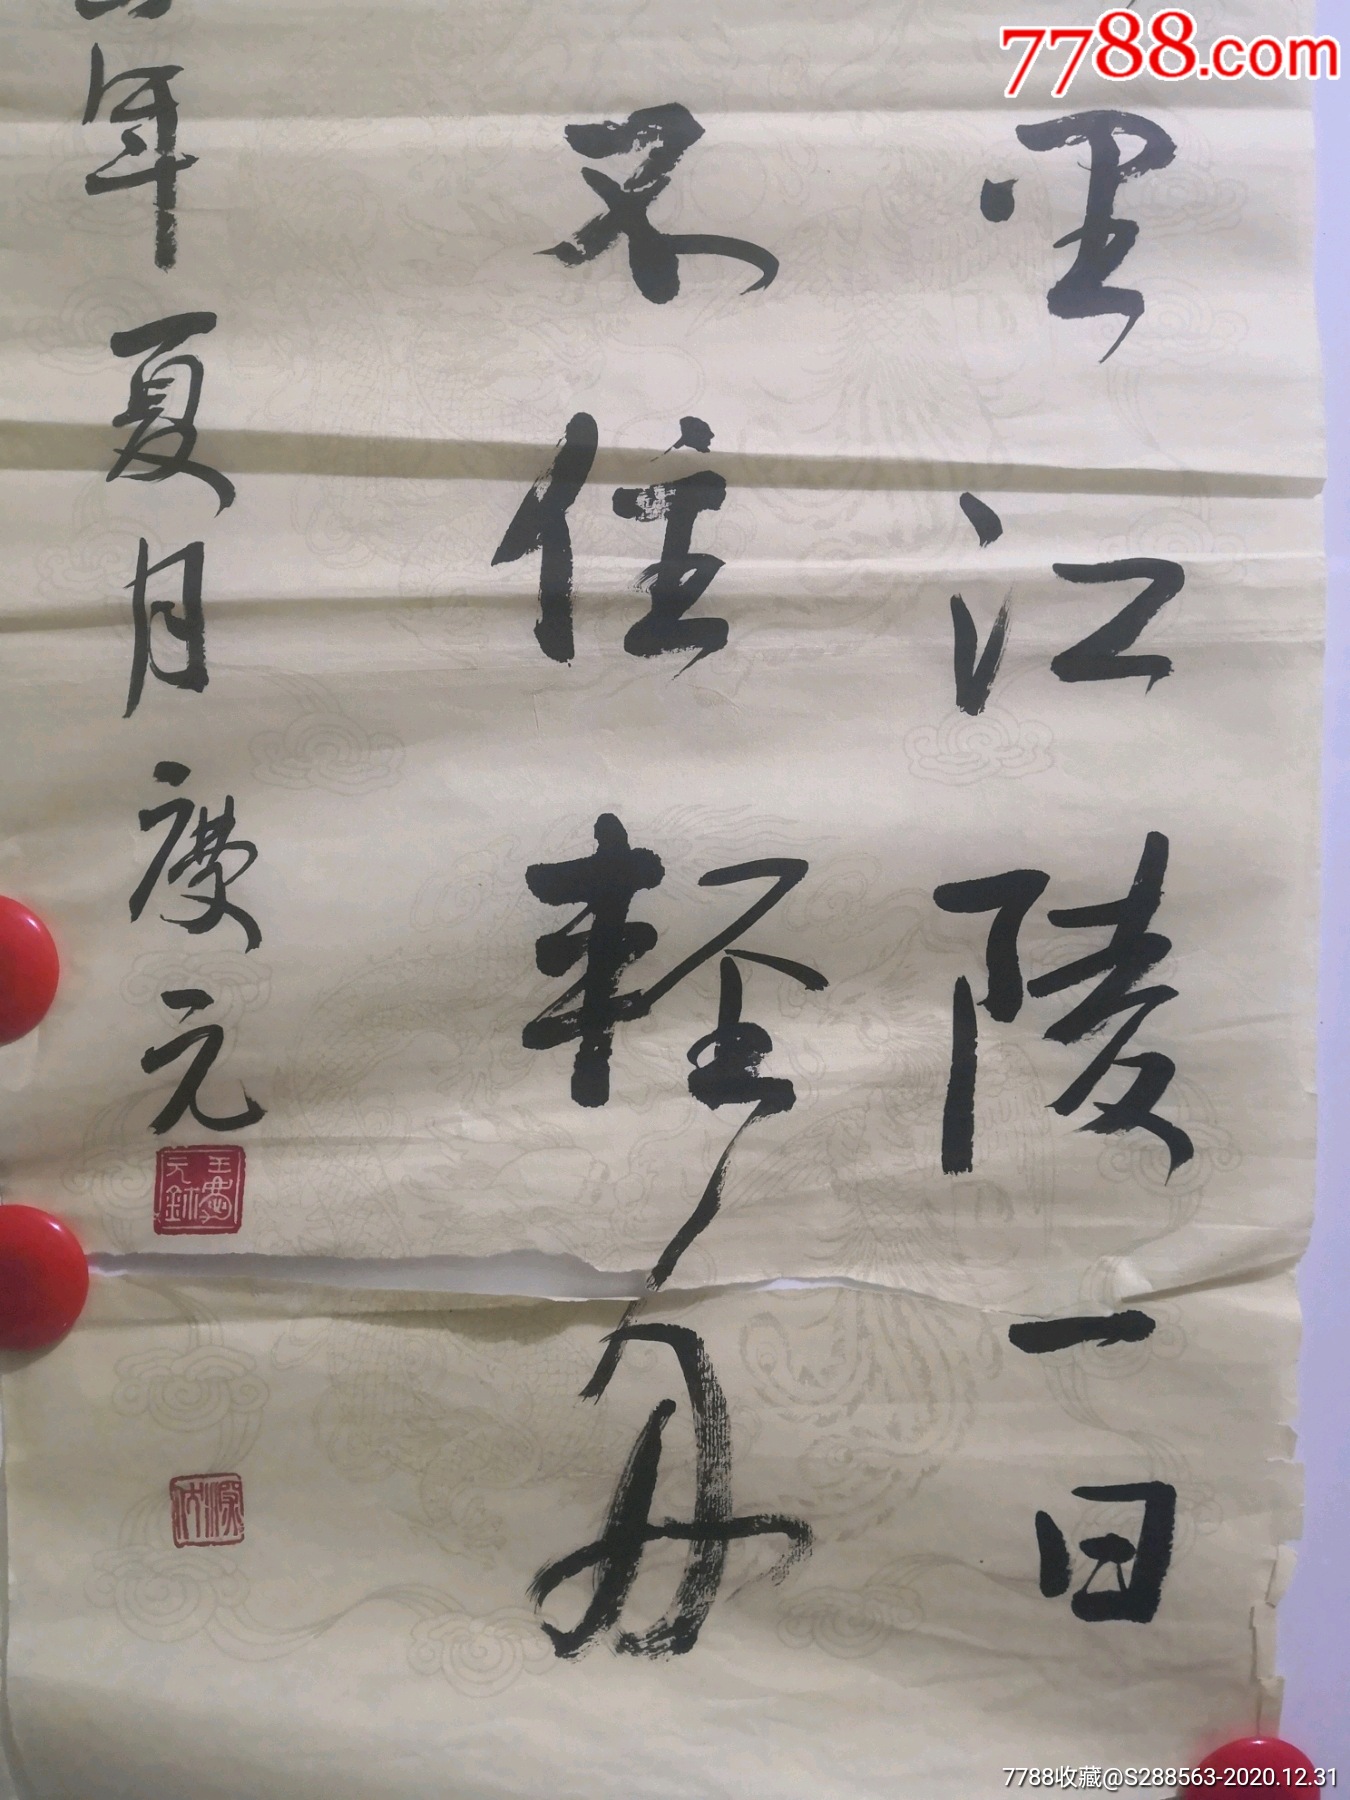 7788.com
里江陵一日
不住輕舟
年夏月慶元
7788收藏@S288563-2020.12.31